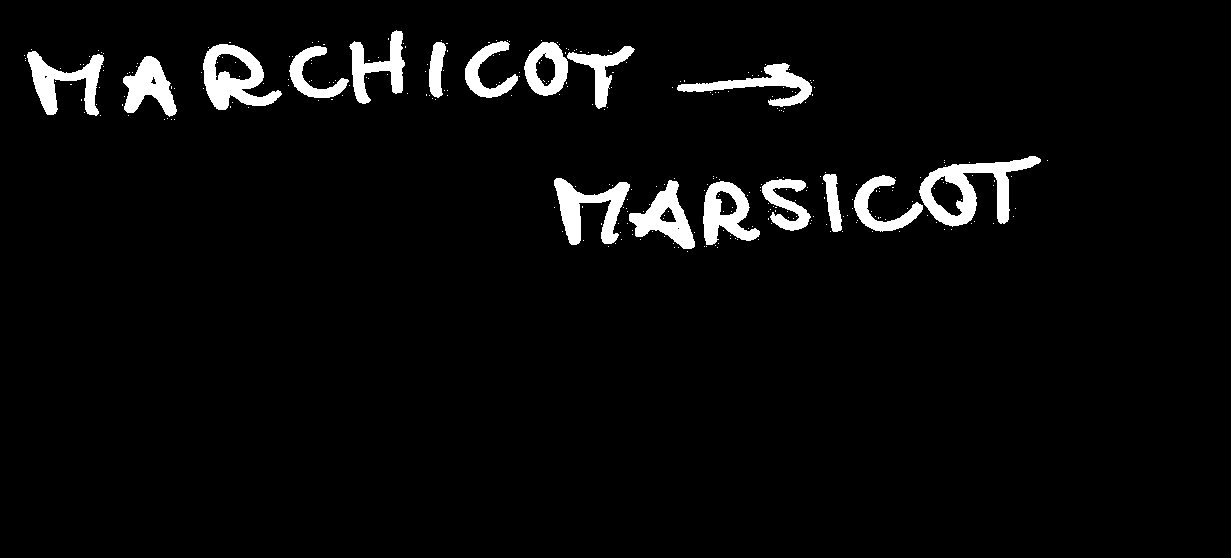 MARCHICOT →
MARSICOT